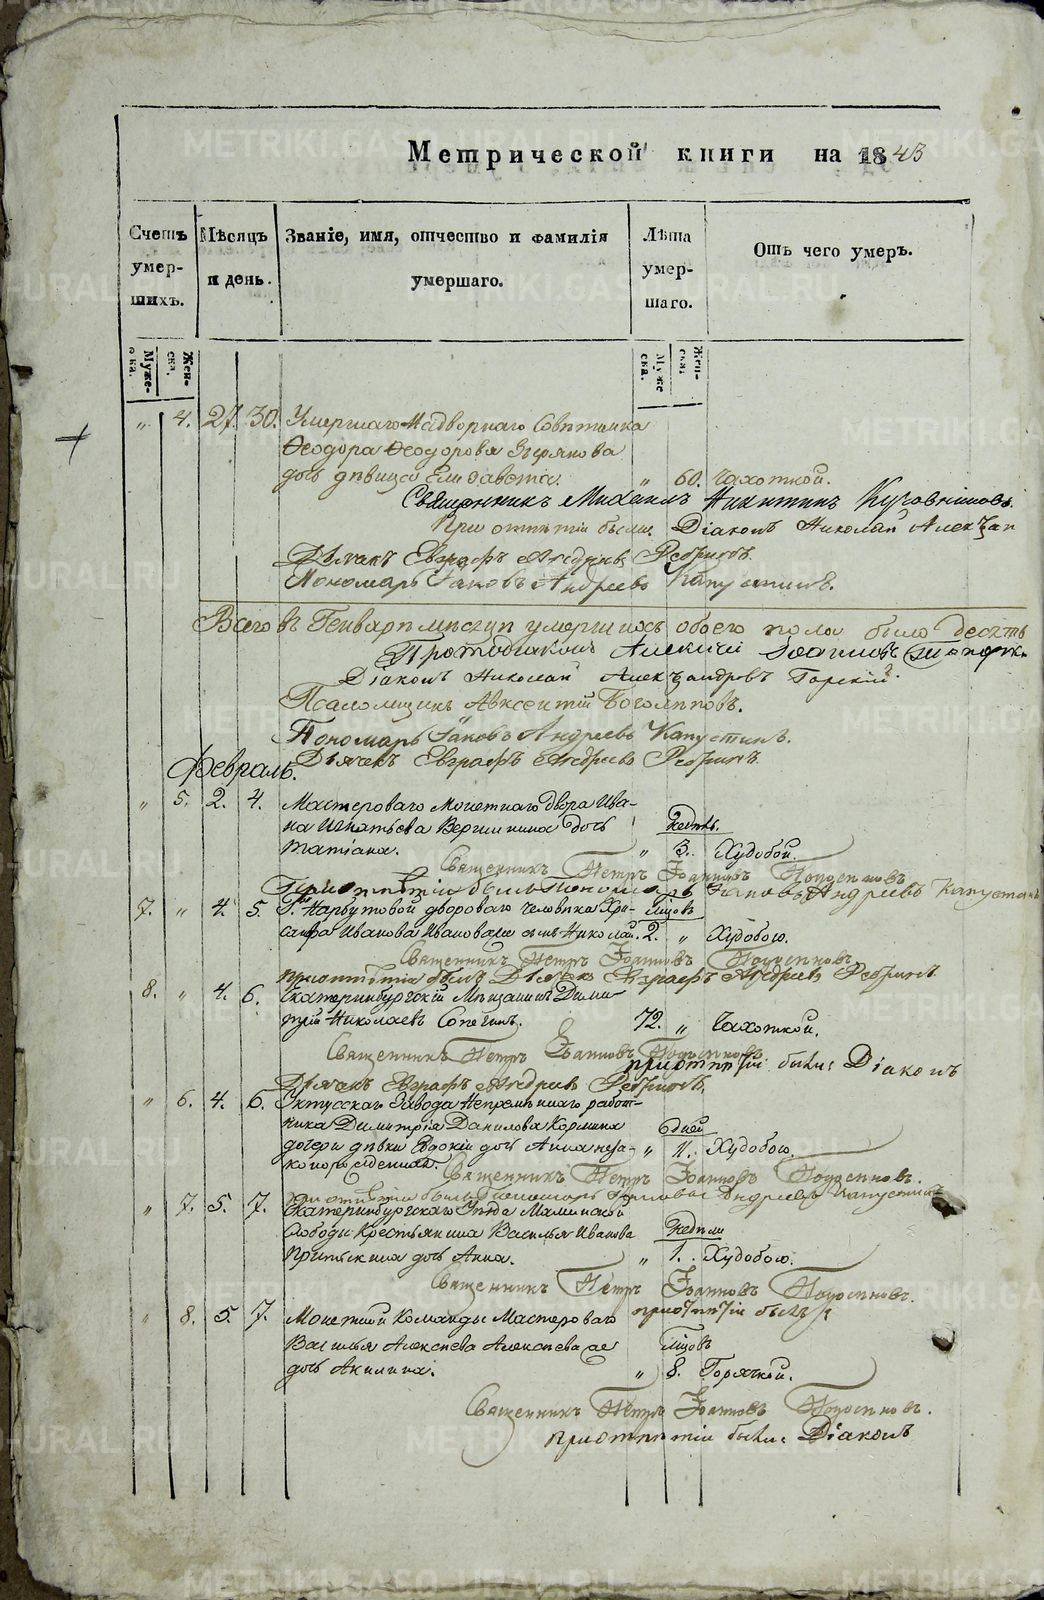 Метрической книги на 1843
Счетъ умер-шихъ.
Мѣсяцъ и день.
Званіе, имя, отчество и фамилія умершаго.
Лѣта умер-шаго.
Отъ чего умеръ.
Муже-ска. Жен-ска. Муже-ска. Жен-ска.
" 4. 27. 30. Умершаго Надворнаго Совѣтника
Ѳеодора Ѳеодорова
дочь дѣвица Елизавета. " 60. Чахоткой.
Священникъ Михаилъ Никитинъ
При отпѣтіи были: Діаконъ Николай
Дьячекъ Евграфъ Андреевъ
Пономарь Іаковъ Андреевъ Капустинъ.
Всего въ Генварѣ мѣсяцѣ умершихъ обоего пола было десять
Протодіаконъ Алексій Іоанновъ
Діаконъ Николай Александровъ Горскій.
Псаломщикъ Авксентій Боголѣповъ.
Пономарь Іаковъ Андреевъ Капустинъ.
Дьячекъ Евграфъ Андреевъ
Февраль.
" 5. 2. 4. Мастероваго Монетнаго двора Ива-
на Игнатьева дочь недѣль.
Татіана. " 3. Худобой.
Священникъ Петръ Іоанновъ
При отпѣтіи былъ Пономарь Іаковъ Андреевъ Капустинъ
7. " 4. 5. Г. Нарбутовой двороваго человѣка Хри- мѣсяцовъ
санфа Иванова Иванова сынъ Николай. 2. " Худобою.
Священникъ Петръ Іоанновъ
при отпѣтіи былъ Дьячекъ Евграфъ Андреевъ
8. " 4. 6. Екатеринбургскій Мѣщанинъ Дими-
трій Николаевъ 72. " Чахоткой.
Священникъ Петръ Іоанновъ
при отпѣтіи были: Діаконъ
Дьячекъ Евграфъ Андреевъ
" 6. 4. 6. завода Непремѣннаго работ-
ника Димитрія Данилова 6 дней
дочери дѣвки Евдокіи дочь Анна неза- " 11. Худобою.
коннорожденная.
Священникъ Петръ Іоанновъ
при отпѣтіи былъ Пономарь Андреевъ Капустинъ
" 7. 5. 7. Екатеринбургскаго уѣзда Маминской
Слободы Крестьянина Василья Иванова недѣли
дочь Анна. " 1. Худобою.
Священникъ Петръ Іоанновъ
при отпѣтіи былъ
" 8. 5. 7. Монетной Команды Мастероваго
Василья Алексѣева Алексѣева мѣсяцовъ
дочь Акилина. " 8. Горячкой.
Священникъ Петръ Іоанновъ
при отпѣтіи были: Діаконъ
METRIKI.GASO-URAL.RU